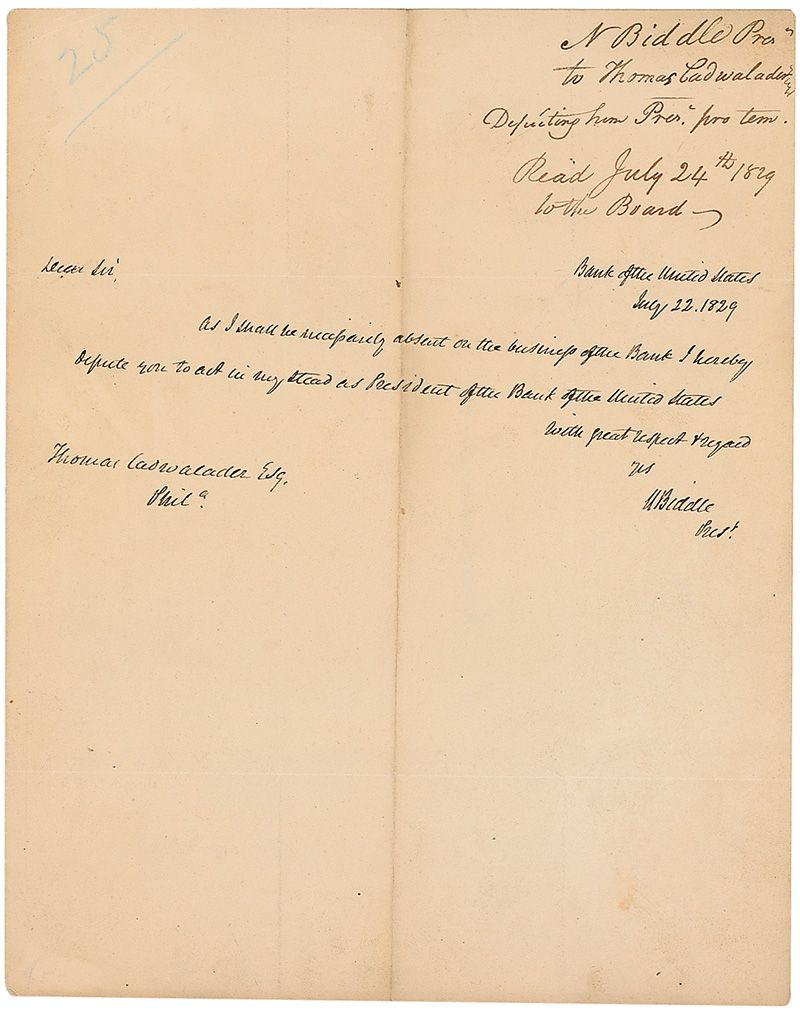 25
N Biddle Presᵗ
to Thomas Cadwalader Esq
Deputing him Presᵗ. pro tem.
Read July 24ᵗʰ 1829
to the Board
Bank of the United States
July 22. 1829
Dear Sir,
As I shall be necessarily absent on the business of the Bank I hereby
depute you to act in my stead as President of the Bank of the United States
With great respect & regard
Yrs
N Biddle
Presᵗ.
Thomas Cadwalader Esq.
Philᵃ.